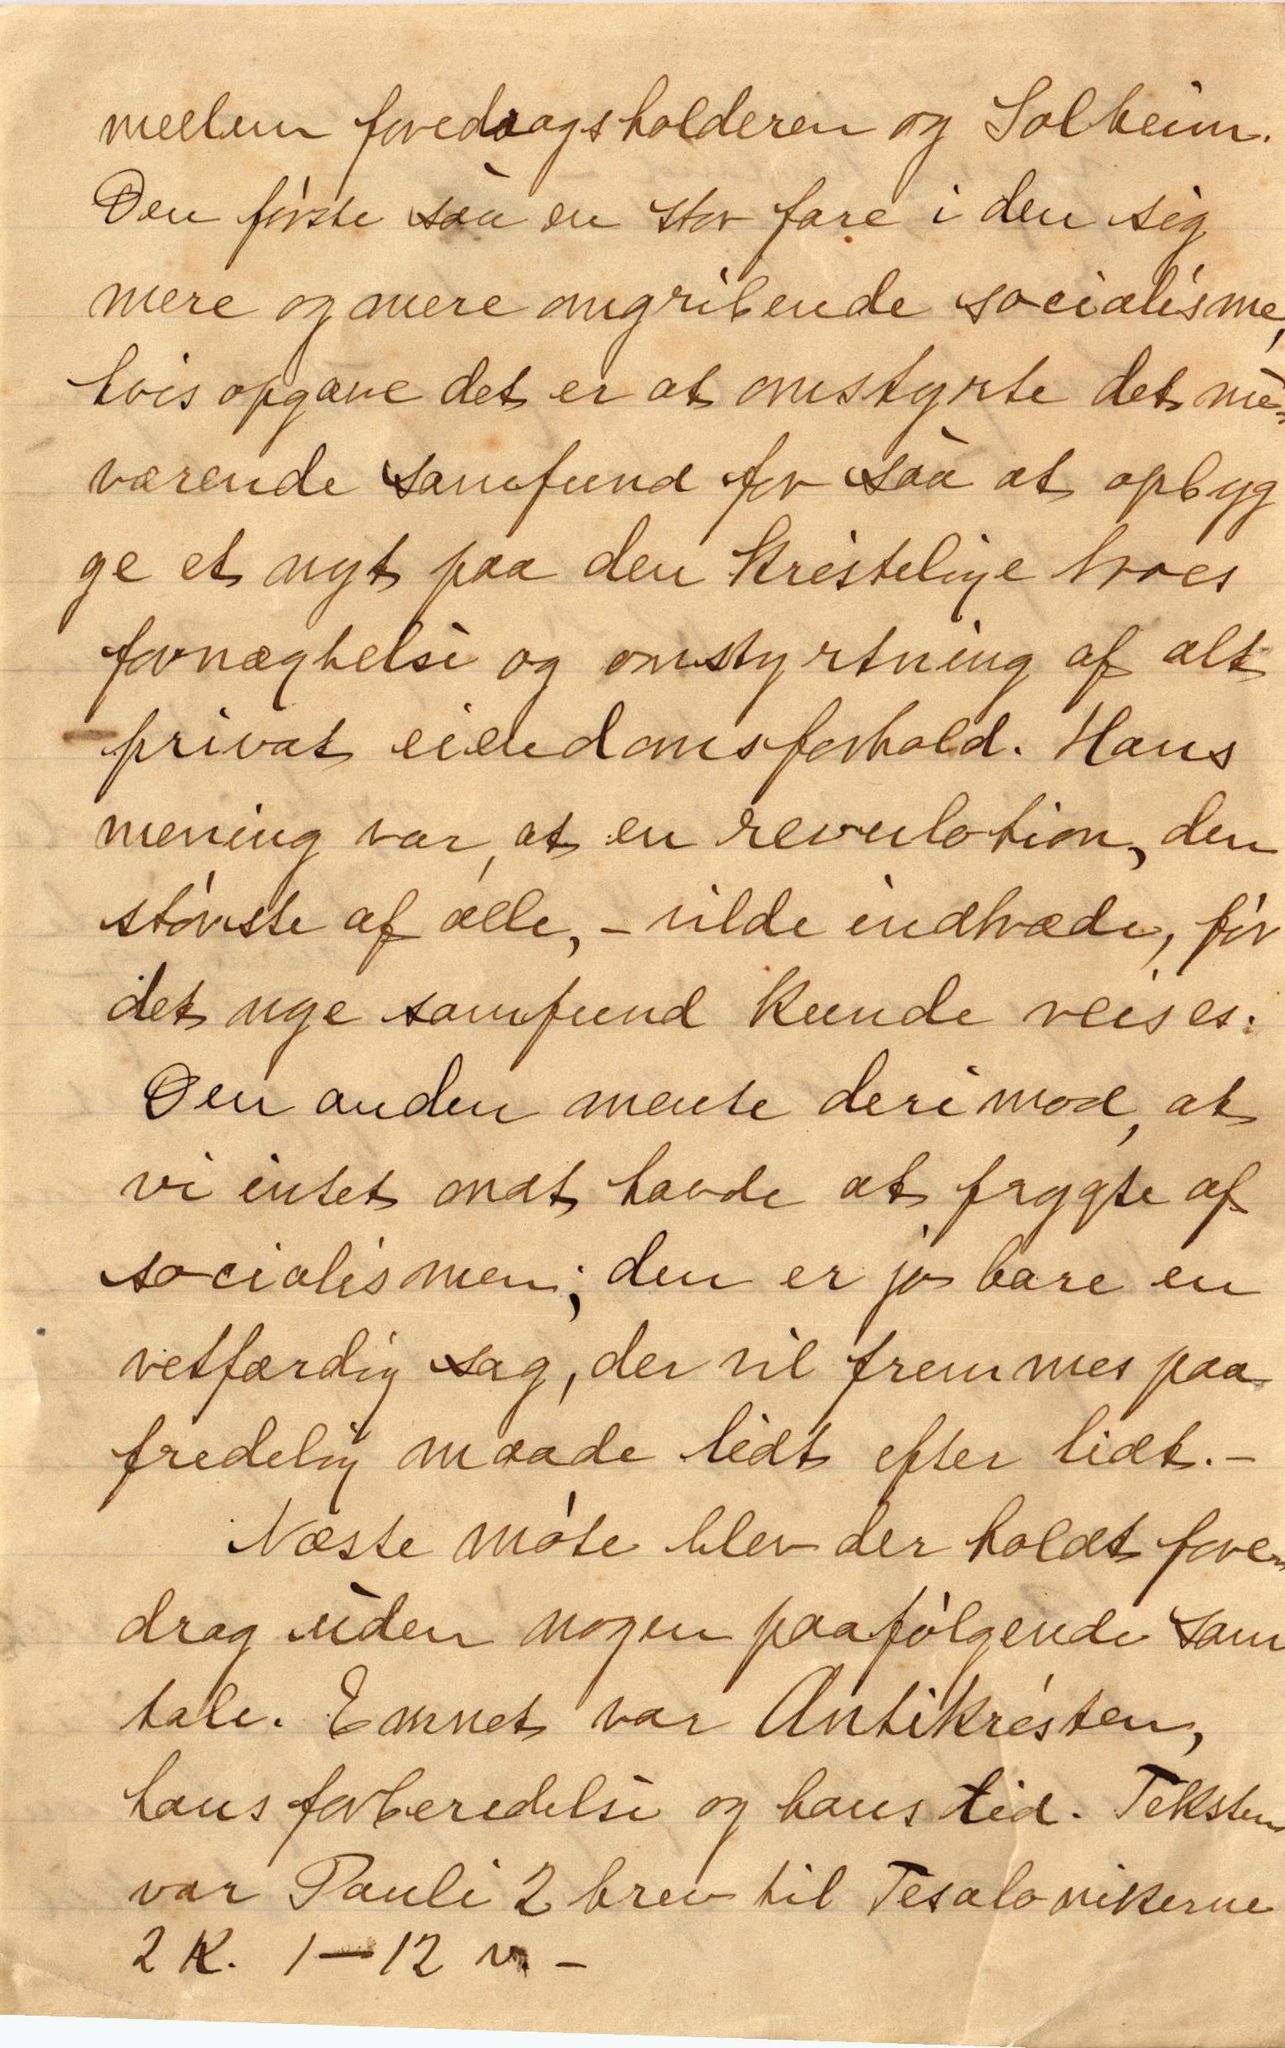 mellem foredragsholderen og Solheim.
Den første såa en stor fare i den sig
mere og mere omgribende socialisme,
hvis opgave det er at omstyrte det nu-
værende samfund for såa at opbyg
ge et nyt paa den kristelige troes
fornægtelse og omstyrtning af alt
privat eiendomsforhold. Hans
mening var, at en revulotion, den
største af alle, – vilde indtræde, før
det nye samfund kunde reises.
Den anden mente derimod, at
vi intet ondt havde at frygte af
socialismen; den er jo bare en
retfærdig sag, der vil fremmes paa
fredelig maade lidt efter lidt. –
Næste møte blev der holdt fore-
drag uden nogen paafølgende sam
tale. Emnet var Antikristen,
hans forberedelse og hans tid. Teksten
var Pauli 2 brev til Tesalonikerne
2 K. 1–12 v. –